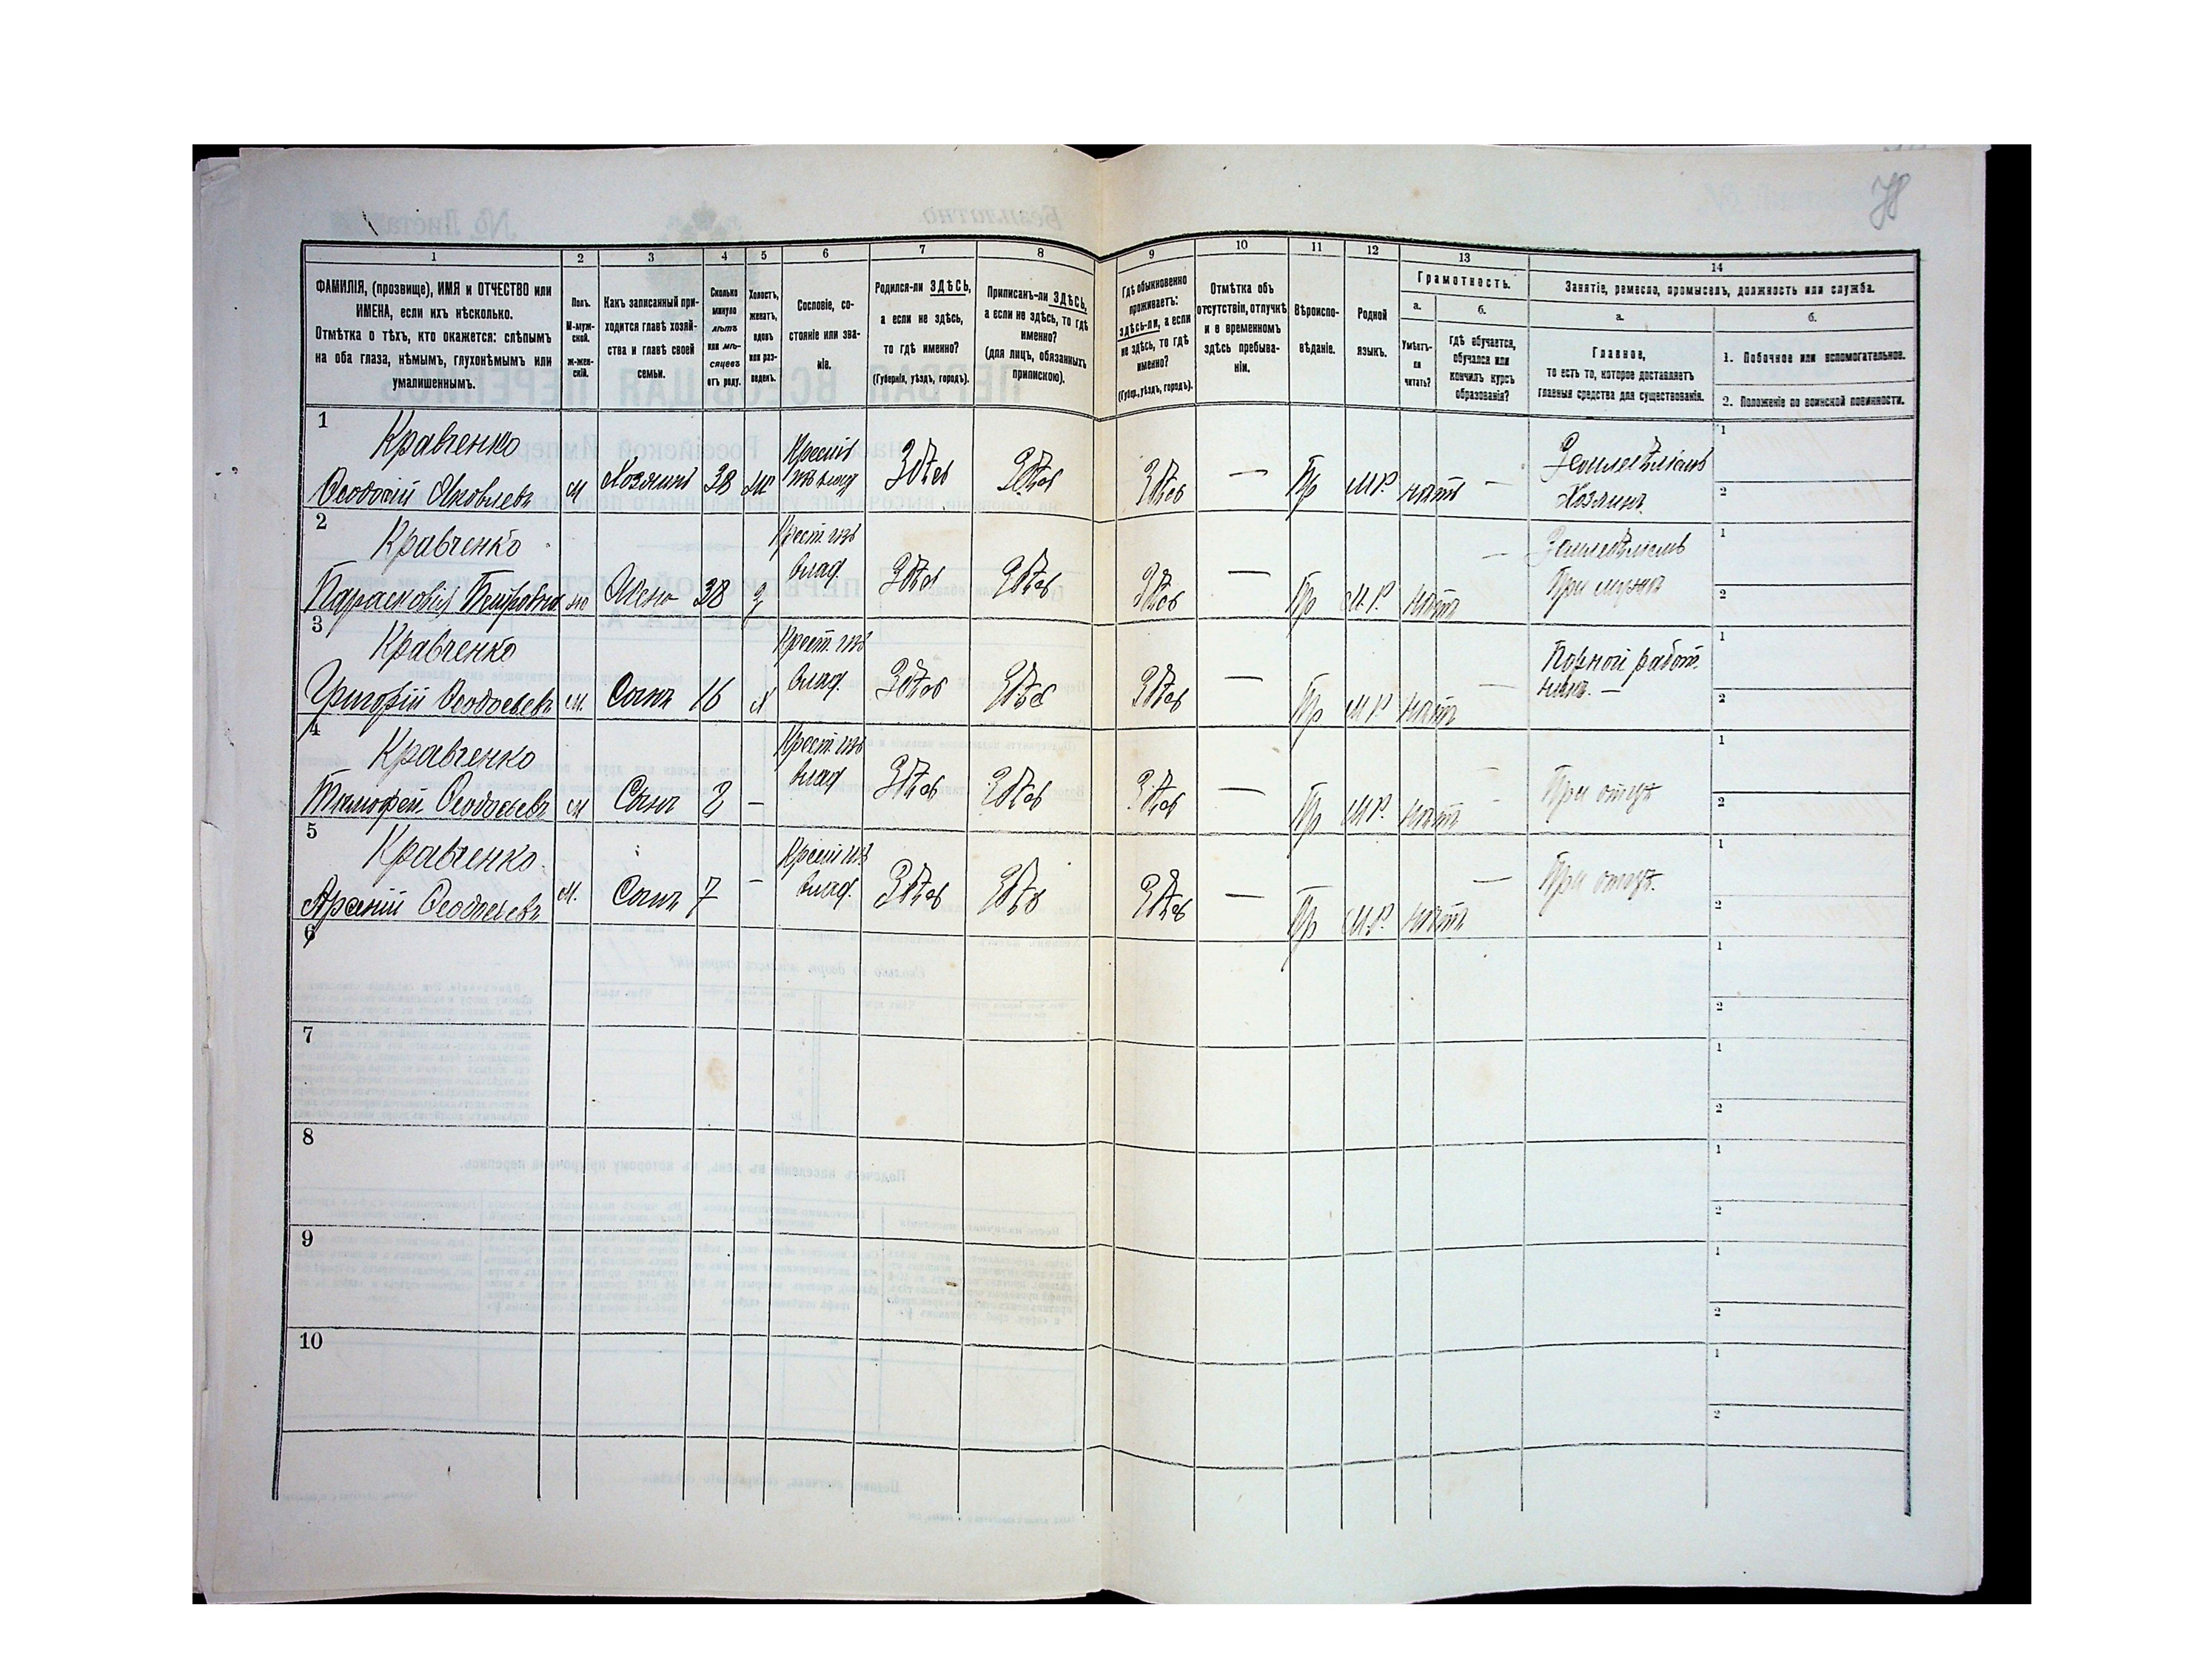 78
1 2 3 4 5 6 7 8 9 10 11 12 13 14
ФАМИЛІЯ, (прозвище), ИМЯ и ОТЧЕСТВО или
ИМЕНА, если ихъ нѣсколько.
Отмѣтка о тѣхъ, кто окажется: слѣпымъ
на оба глаза, нѣмымъ, глухонѣмымъ или
умалишеннымъ.
Полъ.
М-муж-
ской.
Ж-жен-
скій.
Какъ записанный при-
ходится главѣ хозяй-
ства и главѣ своей
семьи.
Сколько
минуло
лѣтъ
или мѣ-
сяцевъ
отъ роду.
Холостъ,
женатъ,
вдовъ
или раз-
веденъ.
Сословіе, со-
стояніе или зва-
ніе.
Родился-ли ЗДѢСЬ,
а если не здѣсь,
то гдѣ именно?
(Губернія, уѣздъ, городъ).
Приписанъ-ли ЗДѢСЬ,
а если не здѣсь, то гдѣ
именно?
(для лицъ, обязанныхъ
припискою).
Гдѣ обыкновенно
проживаетъ:
здѣсь-ли, а если
не здѣсь, то гдѣ
именно?
(Губер., уѣздъ, городъ).
Отмѣтка объ
отсутствіи, отлучкѣ
и о временномъ
здѣсь пребыва-
ніи.
Вѣроиспо-
вѣданіе.
Родной
языкъ.
Грамотность.
а.
Умѣетъ-
ли
читать?
б.
гдѣ обучается,
обучался или
кончилъ курсъ
образованія?
Занятіе, ремесло, промыселъ, должность или служба.
а.
Главное,
то есть то, которое доставляетъ
главныя средства для существованія.
б.
1. Побочное или вспомогательное.
2. Положеніе по воинской повинности.
1
Кравченко
Ѳеодосій Яковлевъ м Хозяинъ 38 Здѣсь Здѣсь Здѣсь — Пр М.Р. нѣтъ —
Хозяинъ
1
2
2
Кравченко Крест. изъ
влад.
Парасковія Петровна ж Жена 38 Здѣсь Здѣсь Здѣсь — Пр М.Р. нѣтъ —
При мужѣ
1
2
3
Кравченко Крест. изъ
влад.
Григорій Ѳеодосьевъ м. Сынъ 16 Х Здѣсь Здѣсь Здѣсь — Пр М.Р. нѣтъ —
работ-
никъ. —
1
2
4
Кравченко Крест. изъ
влад.
Тимофей Ѳеодосьевъ м Сынъ 2 — Здѣсь Здѣсь Здѣсь — Пр М.Р. нѣтъ —
При отцѣ
1
2
5
Кравченко Крест. изъ
влад.
Арсеній Ѳеодосьевъ м. Сынъ 7 — Здѣсь Здѣсь Здѣсь — Пр М.Р. нѣтъ —
При отцѣ.
1
2
6
1
2
7
1
2
8
1
2
9
1
2
10
1
2